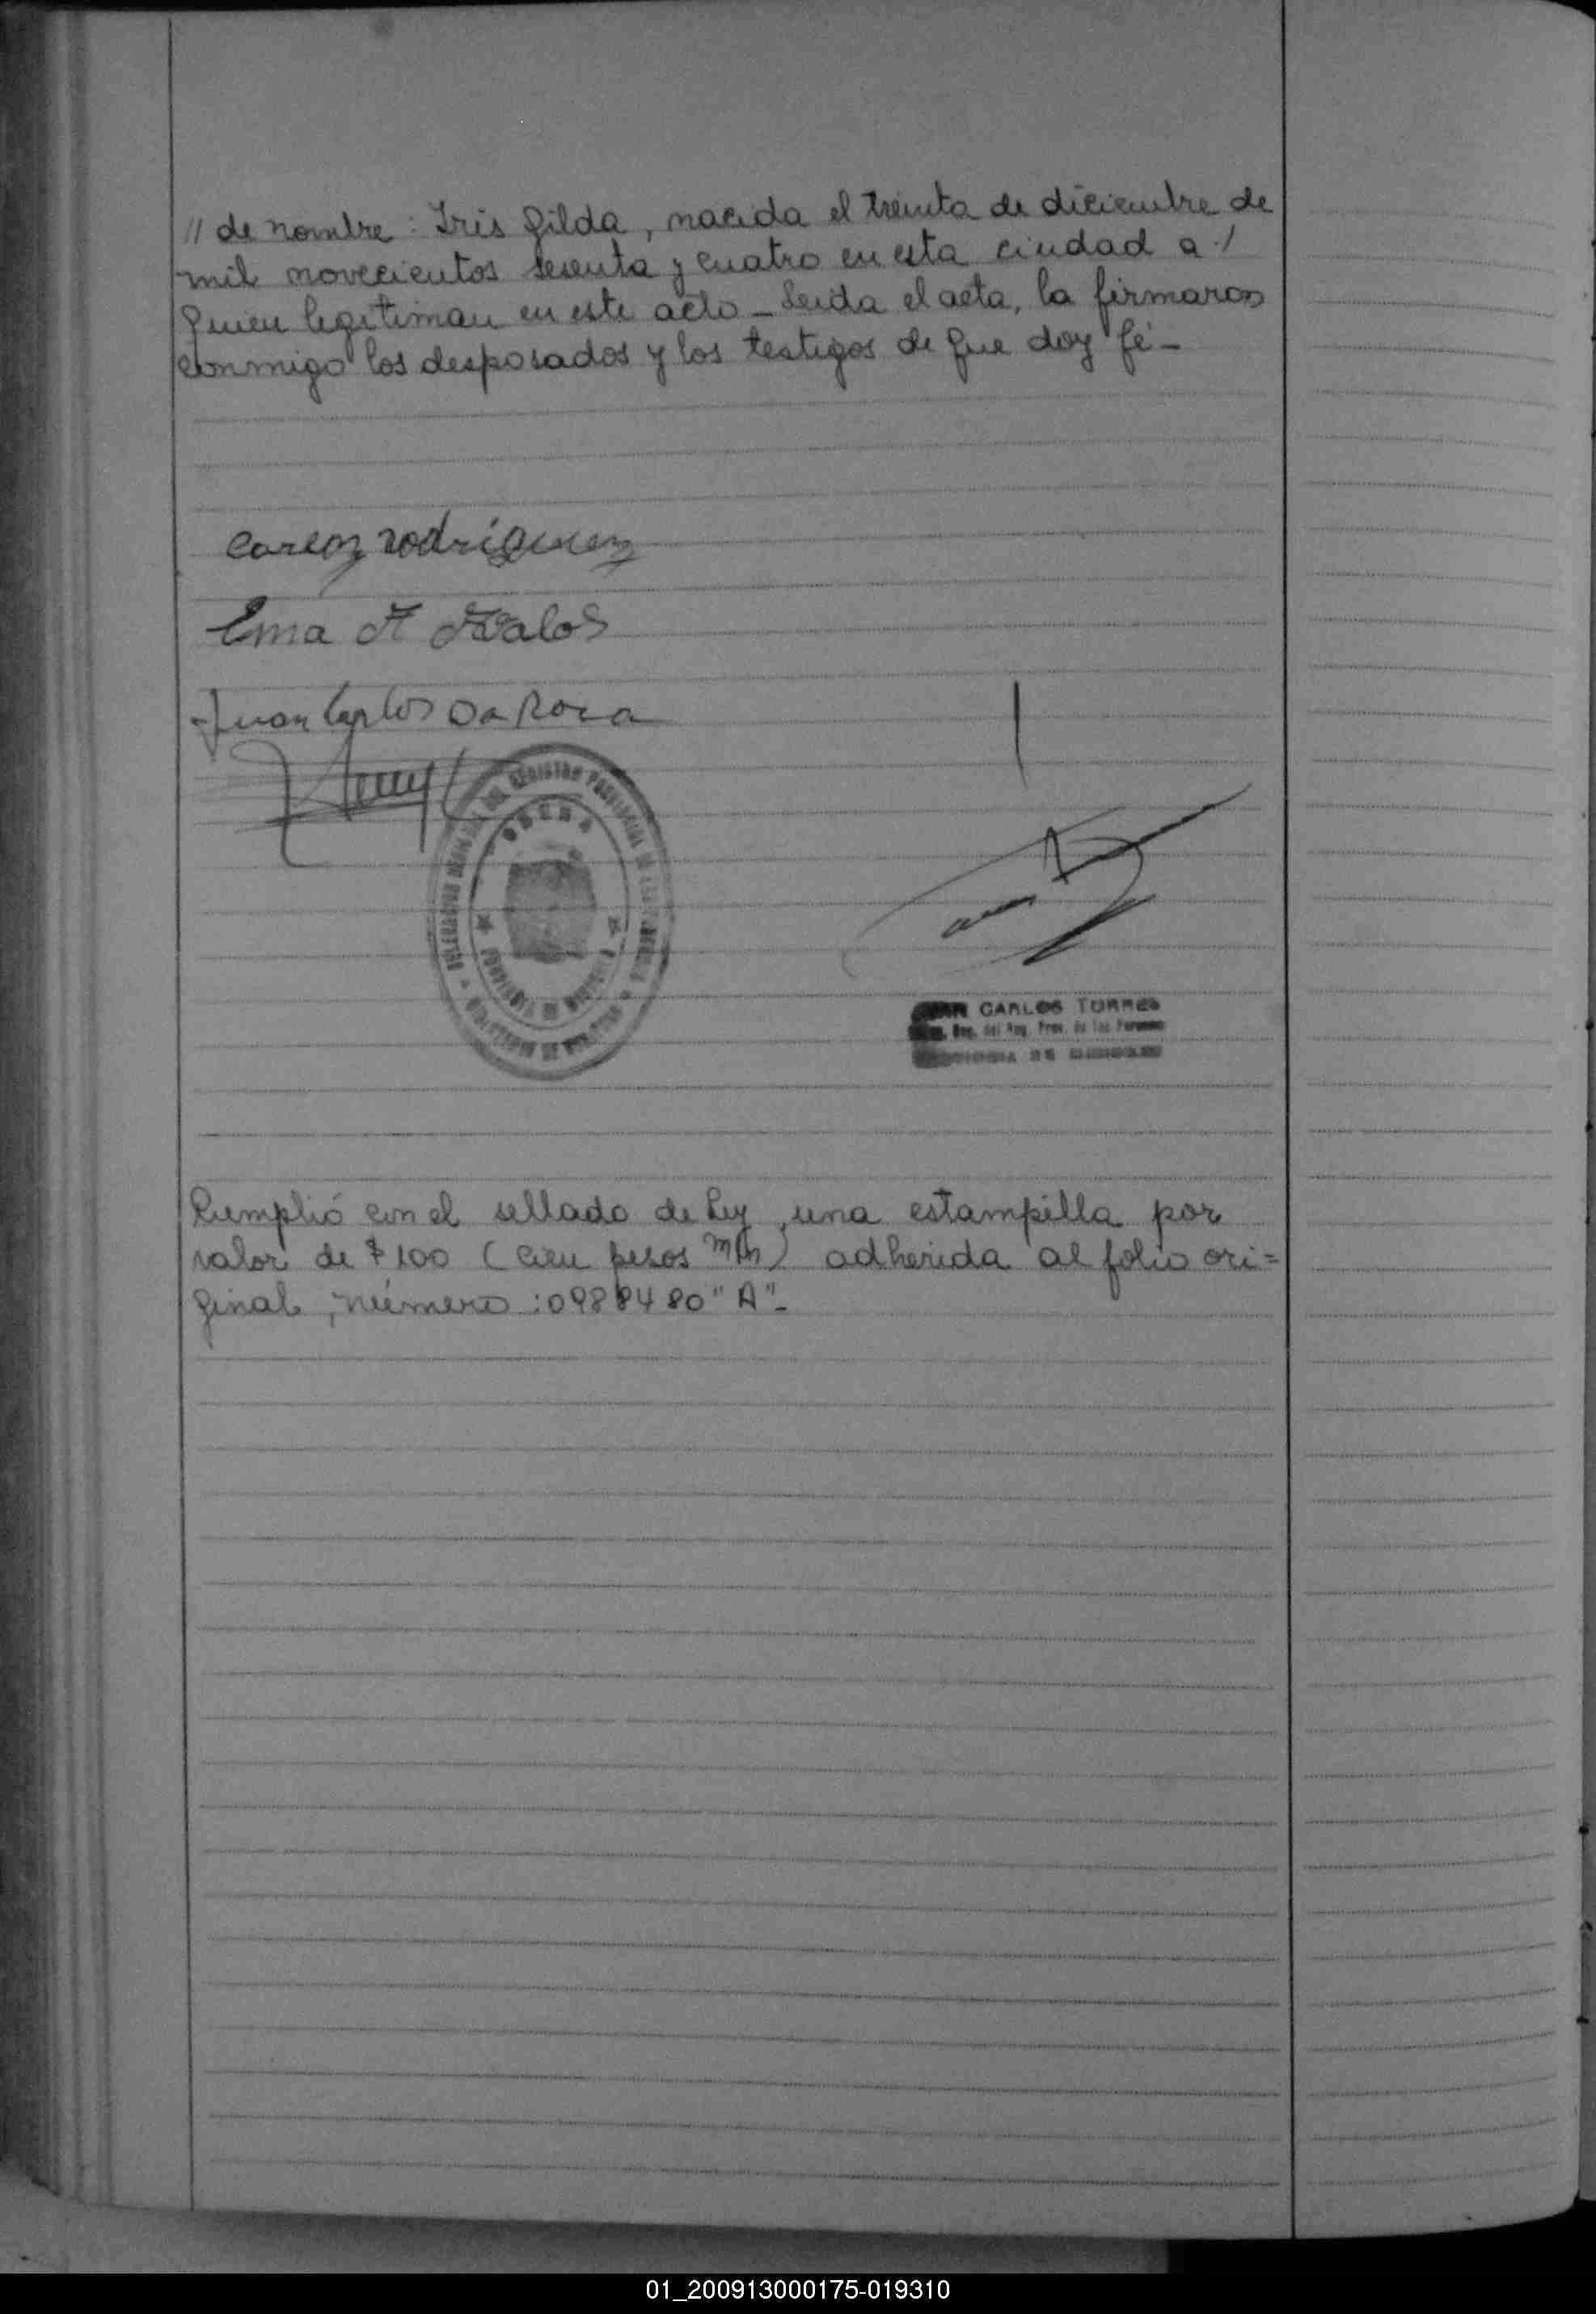 // de nombre: Iris Gilda, nacida el treinta de diciembre de
mil novecientos sesenta y cuatro en esta ciudad a ./
quien legitiman en este acto_ Leida el acta, la firmaron
conmigo los desposados y los testigos de que doy fé_
Carloz rodriguez
Ema A Avalos
Juan Carlos Da Rosa
OBERA
CARLOS TORRES
del Reg. Prov. de las Personas
PROVINCIA DE MISIONES
Cumplió con el sellado de Ley, una estampilla por
valor de $100 (cien pesos m/n) adherida al folio ori=
ginal, número: 0988480 "A"_
01_200913000175-019310